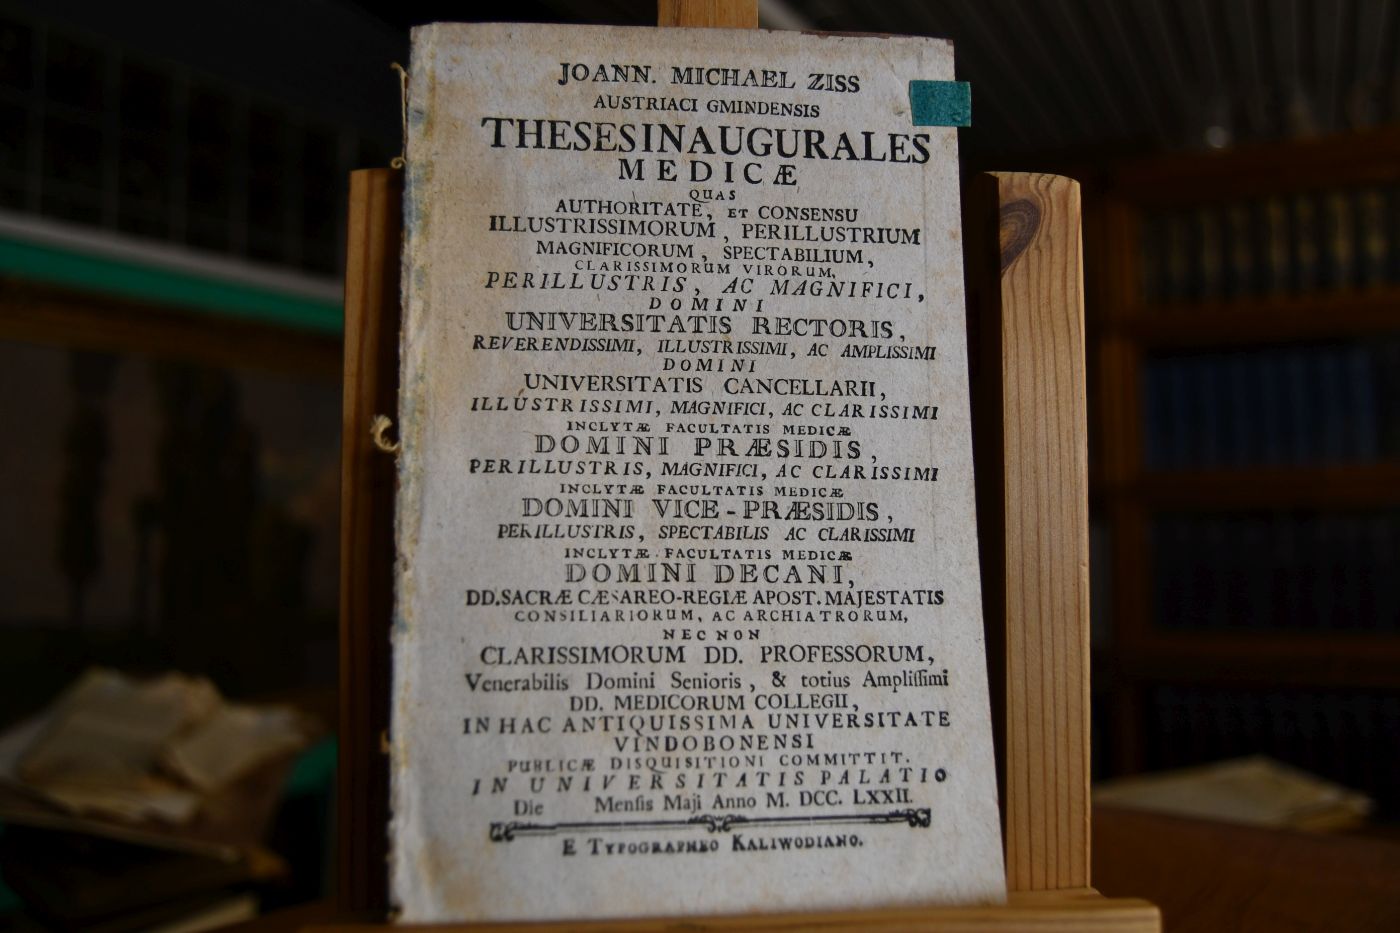 JOANN. MICHAEL ZISS
AUSTRIACI GMINDENSIS
THESES INAUGURALES
MEDICÆ
QUAS
AUTHORITATE, ET CONSENSU
ILLUSTRISSIMORUM, PERILLUSTRIUM
MAGNIFICORUM, SPECTABILIUM,
CLARISSIMORUM VIRORUM,
PERILLUSTRIS, AC MAGNIFICI,
DOMINI
UNIVERSITATIS RECTORIS,
REVERENDISSIMI, ILLUSTRISSIMI, AC AMPLISSIMI
DOMINI
UNIVERSITATIS CANCELLARII,
ILLUSTRISSIMI, MAGNIFICI, AC CLARISSIMI
INCLYTÆ FACULTATIS MEDICÆ
DOMINI PRÆSIDIS,
PERILLUSTRIS, MAGNIFICI, AC CLARISSIMI
INCLYTÆ FACULTATIS MEDICÆ
DOMINI VICE-PRÆSIDIS,
PERILLUSTRIS, SPECTABILIS AC CLARISSIMI
INCLYTÆ FACULTATIS MEDICÆ
DOMINI DECANI,
DD. SACRÆ CÆSAREO-REGIÆ APOST. MAJESTATIS
CONSILIARIORUM, AC ARCHIATRORUM,
NEC NON
CLARISSIMORUM DD. PROFESSORUM,
Venerabilis Domini Senioris, & totius Ampliſſimi
DD. MEDICORUM COLLEGII,
IN HAC ANTIQUISSIMA UNIVERSITATE
VINDOBONENSI
PUBLICÆ DISQUISITIONI COMMITTIT.
IN UNIVERSITATIS PALATIO
Die Menſis Maji Anno M. DCC. LXXII.
E TYPOGRAPHEO KALIWODIANO.